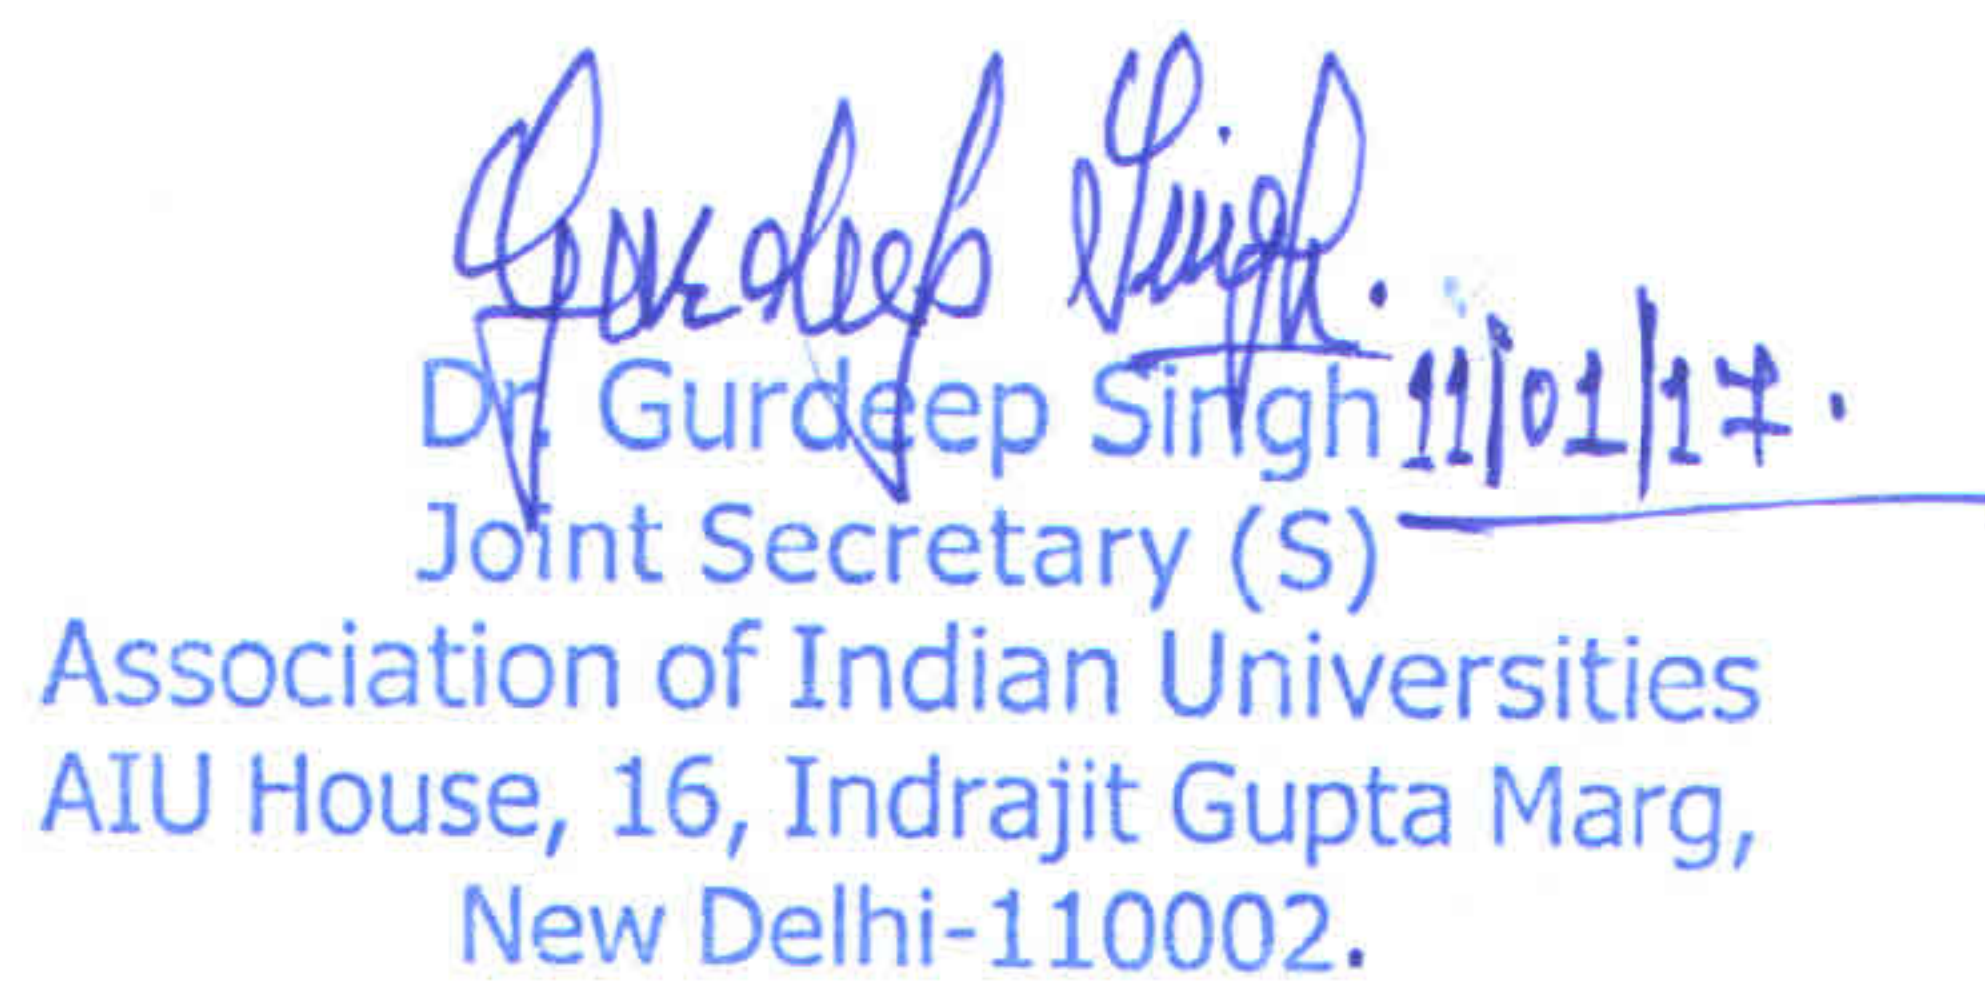 Gurdeep Singh.
Dr. Gurdeep Singh 11/01/17.
Joint Secretary (S)
Association of Indian Universities
AIU House, 16, Indrajit Gupta Marg,
New Delhi-110002.